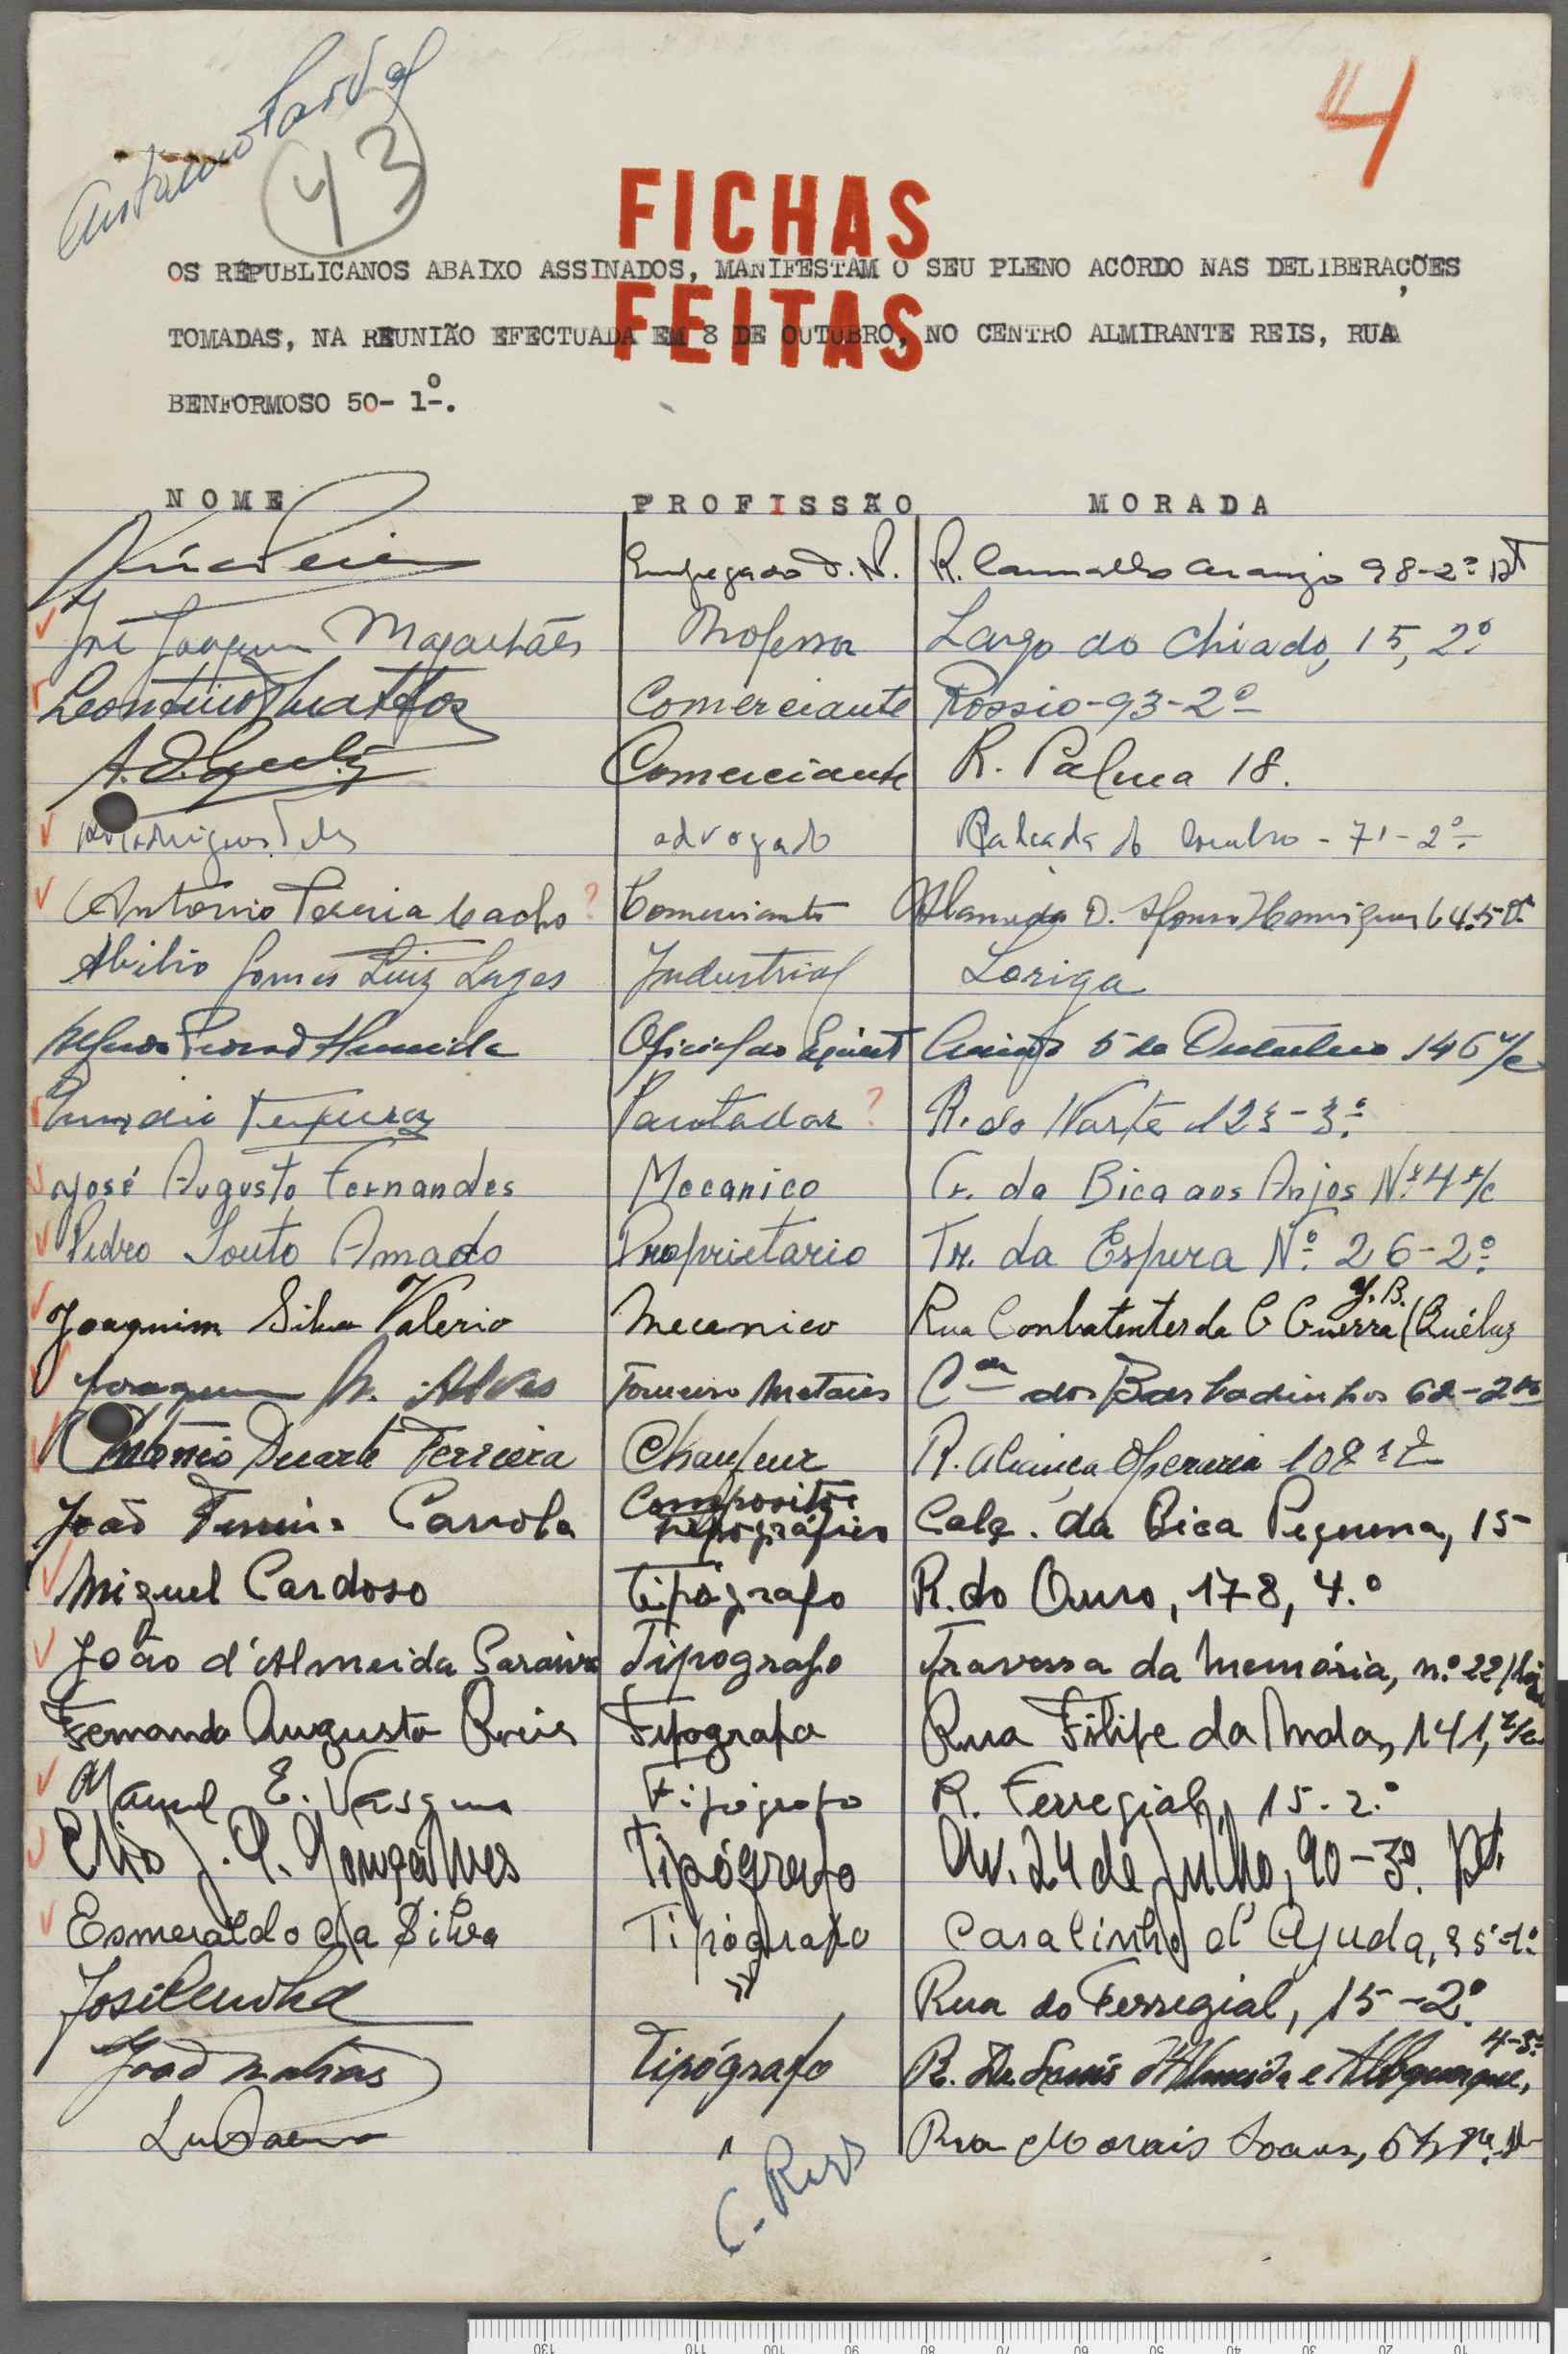 4
43
FICHAS
OS REPUBLICANOS ABAIXO ASSINADOS, MANIFESTAM O SEU PLENO ACORDO NAS DELIBERAÇÕES
FEITAS
TOMADAS, NA REUNIÃO EFECTUADA EM 8 DE OUTUBRO, NO CENTRO ALMIRANTE REIS, RUA
BENFORMOSO 50- 1º.
NOME PROFISSÃO MORADA
Empregado R. Carvalho Araujo 98-2º Dt
José Joaquim Magalhães Professor Largo do Chiado, 15, 2º
Leontino Mattos Comerciante Rossio-93-2º
Comerciante R. Palma 18.
advogado Calçada do Combro - 71-2º
Antonio Pereira ? Comerciante Alameda D. Afonso Henriques 64-5º
Abilio Gomes Luiz Lages Industrial Loriga
Almeida Oficial do 5 de Outubro 146 r/c
Teixeira ? R. do Norte 123-3º
José Augusto Fernandes Mecanico Tr. da Bica aos Anjos Nº 4 r/c
Pedro Souto Amado Proprietario Tr. da Espera Nº 26-2º
Joaquim Silva Valerio Mecanico Rua Combatentes da G Guerra J.B. (Quéluz
Joaquim M. Alves Torneiro Metais Cç dos Barbadinhos 62-2º
António Duarte Ferreira Chaufeur R. Aliança Operaria 108
João Ferreira Carrola Compositor tipográfico Calç. da Bica Pequena, 15
Miguel Cardoso Tipógrafo R. do Ouro, 178, 4.º
João d'Almeida Saraiva Tipografo Travessa da Memória, n.º 22
Fernando Augusto Reis Tipografo Rua Filipe da Mata, 141, r/c
Manuel E. Vasques Tipógrafo R. Ferregial, 15-2.º
Elio J. P. Gonçalves Tipógrafo Av. 24 de Julho, 90-3º. Dt.
Esmeraldo da Silva Tipógrafo Casalinho d'Ajuda, 35-1º
José Cunha " Rua do Ferregial, 15-2º
João Matias Tipógrafo R. Dr. Luís d'Almeida e Albuquerque, 4-3º
" Rua Morais Soares,
C. Reis
130 110 100 90 80 70 60 50 40 30 20 10